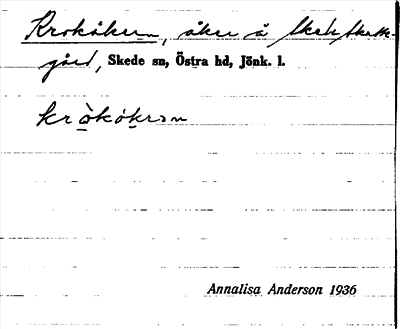 Krokåkern, åker å Skede Skatte-
gård, Skede sn, Östra hd, Jönk. l.
krȯ̀kȧkrən
Annalisa Anderson 1936